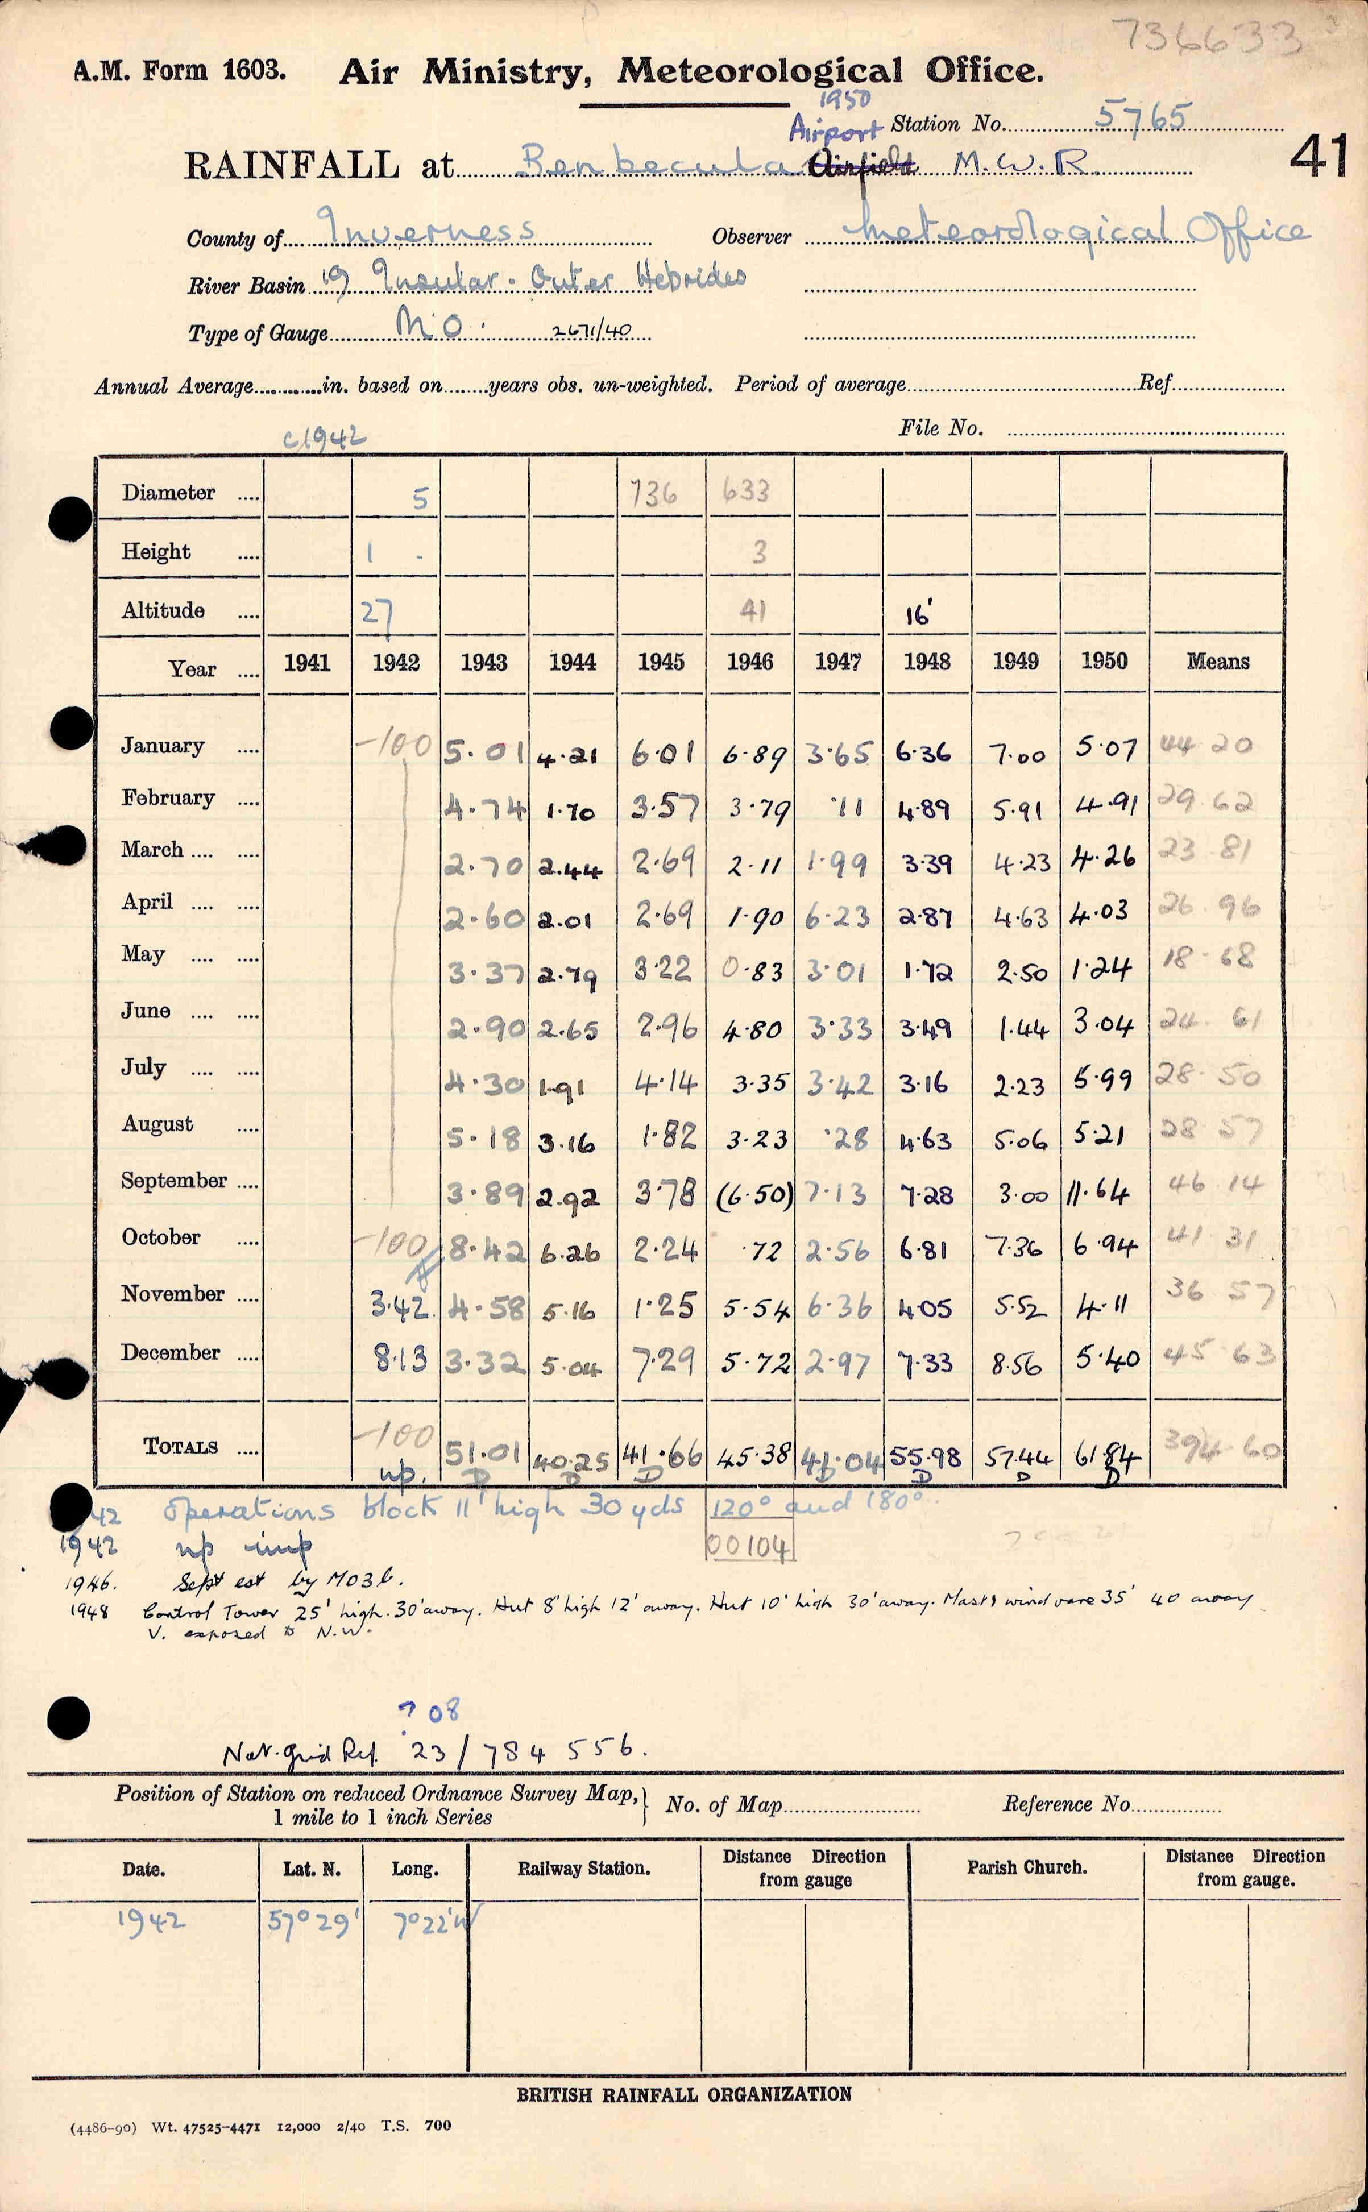 736633
A.M. Form 1603. Air Ministry, Meteorological Office.
1950
Airport Station No. 5765
RAINFALL at Benbecula Airfield M.W.R. 41
County of Inverness Observer Meteorological Office
River Basin 19 Insular. Outer Hebrides
Type of Gauge M.O. 2671/40
Annual Average in. based on years obs. un-weighted. Period of average Ref.
File No.
c1942
Diameter 5 736 633
Height 1 . 3
Altitude 27 41 16'
Year 1941 1942 1943 1944 1945 1946 1947 1948 1949 1950 Means
January -100 5.01 4.21 6.01 6.89 3.65 6.36 7.00 5.07 44 20
February 4.74 1.70 3.57 3.79 .11 4.89 5.91 4.91 29 62
March 2.70 2.44 2.69 2.11 1.99 3.39 4.23 4.26 23 81
April 2.60 2.01 2.69 1.90 6.23 2.87 4.63 4.03 26 96
May 3.37 2.79 3.22 0.83 3.01 1.72 2.50 1.24 18.68
June 2.90 2.65 2.96 4.80 3.33 3.49 1.44 3.04 24. 61
July 4.30 1.91 4.14 3.35 3.42 3.16 2.23 5.99 28.50
August 5.18 3.16 1.82 3.23 .28 4.63 5.06 5.21 28 57
September 3.89 2.92 3.78 (6.50) 7.13 7.28 3.00 11.64 46 14
October -100 8.42 6.26 2.24 .72 2.56 6.81 7.36 6.94 41 31
November 3.42 4.58 5.16 1.25 5.54 6.36 4.05 5.52 4.11 36 57
December 8.13 3.32 5.04 7.29 5.72 2.97 7.33 8.56 5.40 45 63
TOTALS -100 51.01 40.25 41.66 45.38 41.04 55.98 57.44 61.84 394.60
np. D D D D D D D
42 operations block 11' high 30 yds 120° and 180°.
1942 np imp 00104
1946. Sept est by MO3b.
1948 Control Tower 25' high. 30' away. Hut 8' high 12' away. Hut 10' high 30' away. Mast & wind vane 35' 40 away
V. exposed to N.W.
? 08
Nat. Grid Ref. 23/784 556.
Position of Station on reduced Ordnance Survey Map, No. of Map Reference No.
1 mile to 1 inch Series
Date. Lat. N. Long. Railway Station. Distance Direction from gauge Parish Church. Distance Direction from gauge.
1942 57° 29' 7° 22' W
BRITISH RAINFALL ORGANIZATION
(4486-90) Wt. 47525-4471 12,000 2/40 T.S. 700